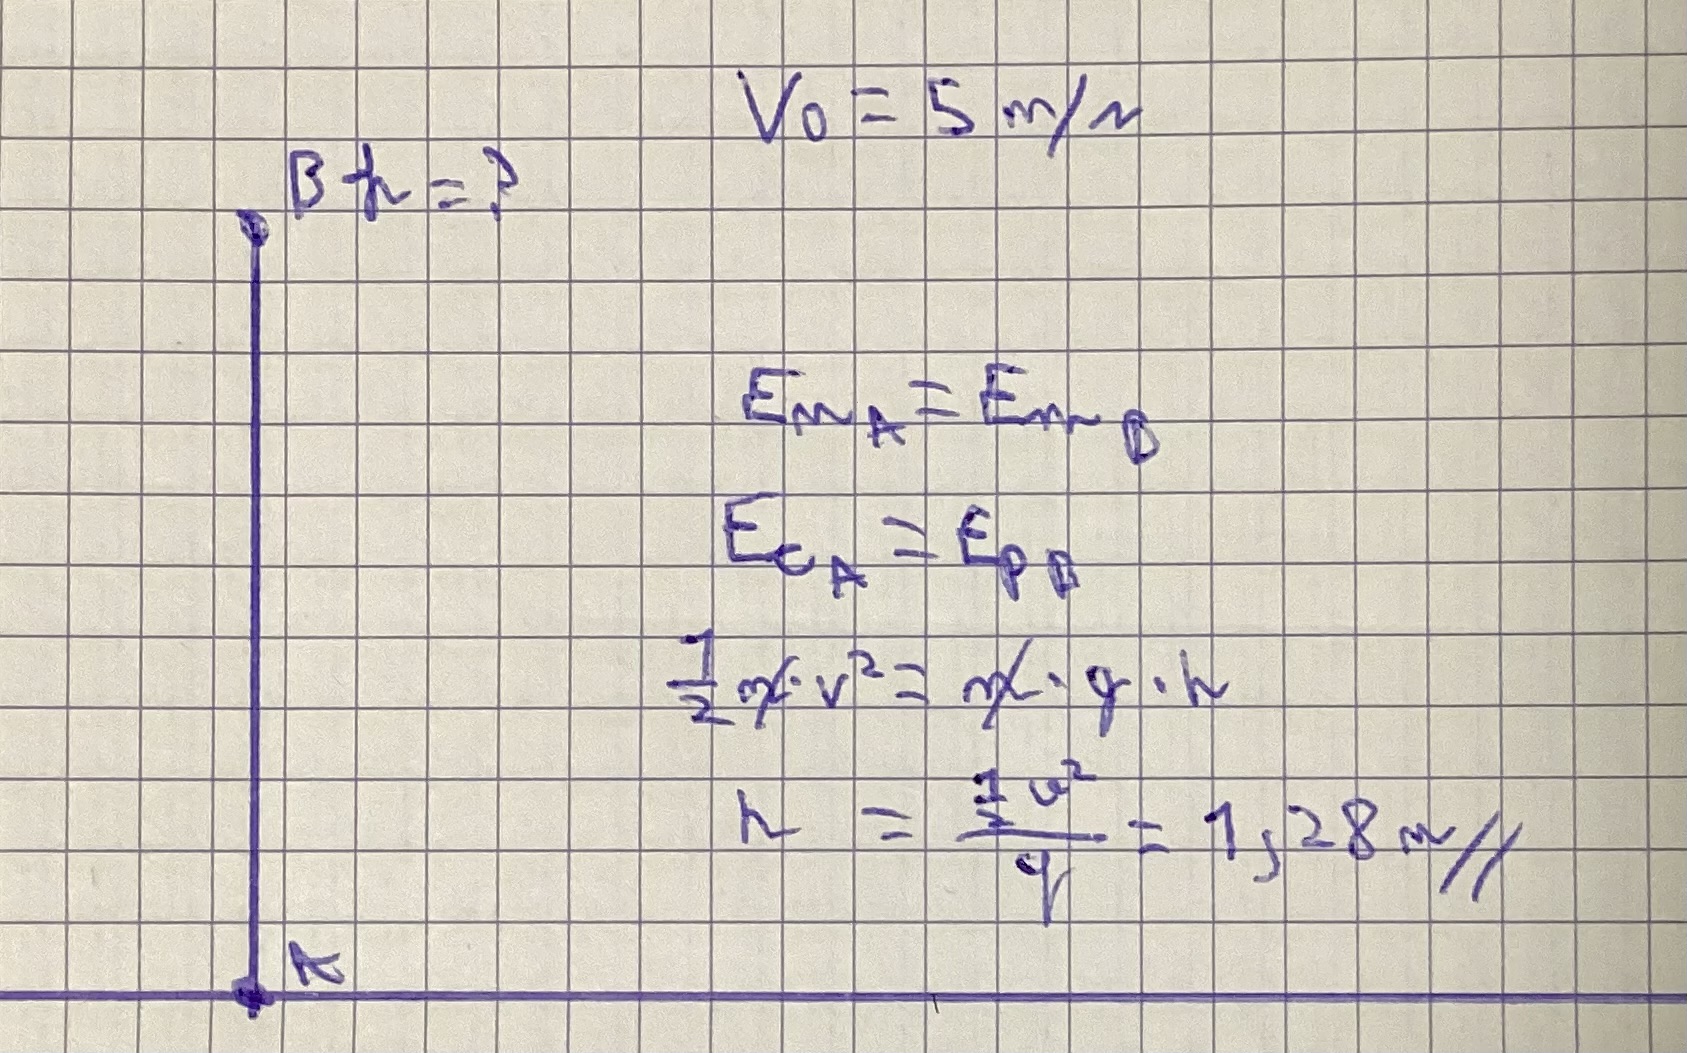 V₀ = 5 m/s
B h = ?
Em_A = Em_B
Ec_A = Ep_B
1/2 m · v² = m · g · h
h = (1/2 v²)/g = 1,28 m//
A